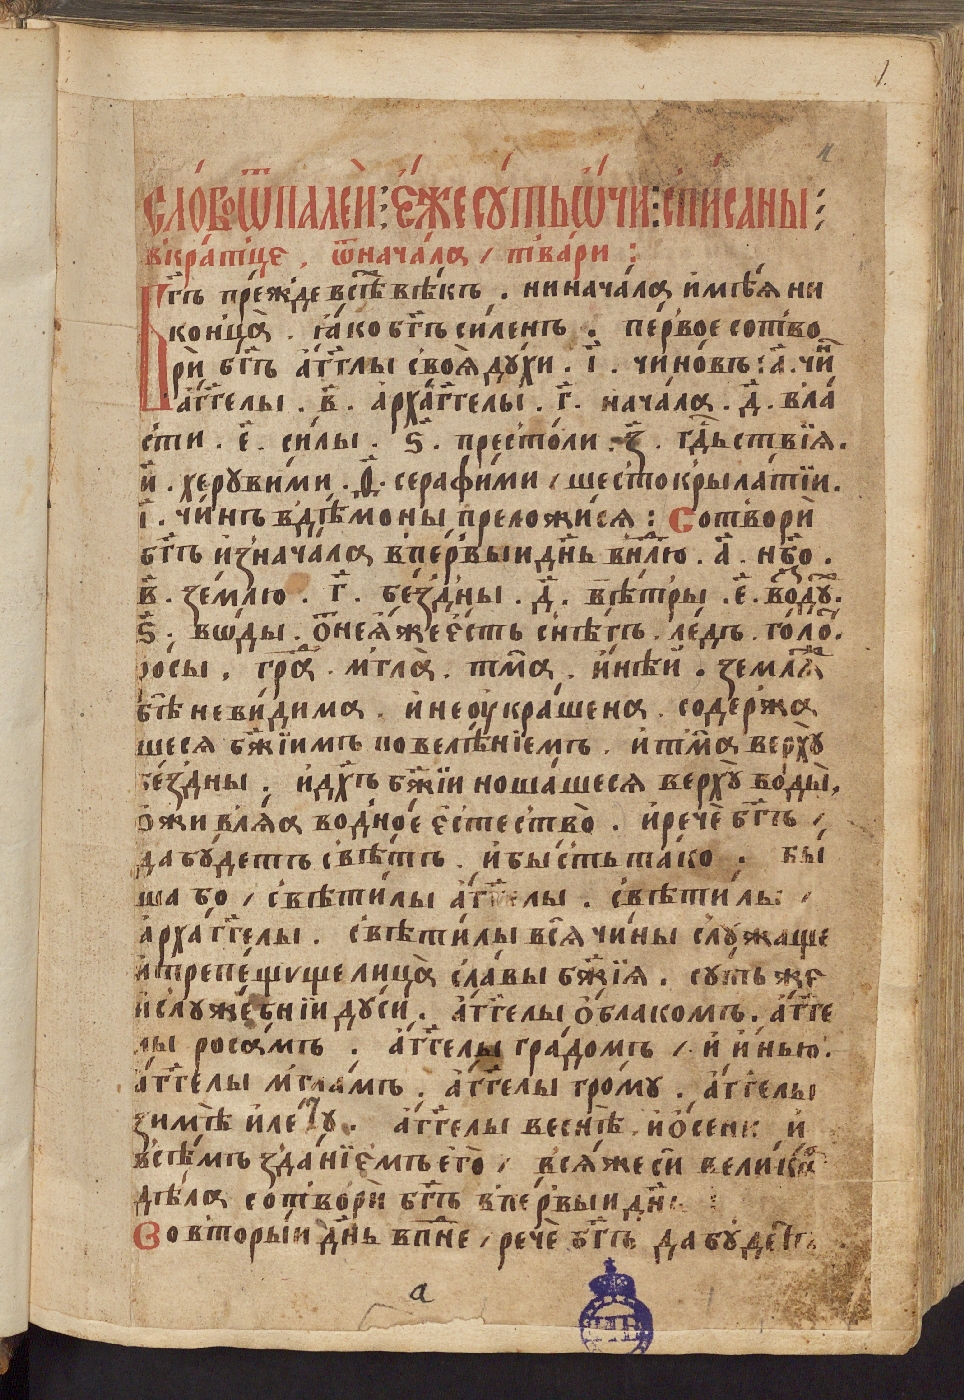 1.
сло́во ѿ палеѝ: є҆́же сꙋ́ть ѻ҆чи: спи́саны:
вкра́тцѣ. ѿ нача́ла / тва́ри:
Бг҃ъ пре́жде всѣ҃ вѣ́къ. ни нача́ла и҆мѣ́ѧ ни
конца̀. ꙗ҆́ко бг҃ъ си́ленъ. пе́рвое сотво
рѝ бг҃ъ а҆́гг҃лы своѧ̀ дꙋ́хи. і҃. чино́въ: а҃. чи́н
а҆́гг҃елы. в҃. а҆рха́гг҃елы. г҃. нача́ла. д҃. вла́
сти. є҃. си́лы. ѕ҃. престо́ли. з҃. гдⷭ҇ьствїѧ.
и҃. херꙋви́ми. ѳ҃. серафи́ми / шестокрыла́тїи.
і҃. чи́нъ в дѣ́моны преложи́сѧ: Сотворѝ
бг҃ъ и҆знача́ла в пе́рвыи дн҃ь в нл҃ю. а҃. нб҃о.
в҃. зе́млю. г҃. бе́здны. д҃. вѣ́тры. є҃. во́дꙋ.
ѕ҃. вѡ́ды. ѿ неѧ́же є҆́сть снѣ́гъ. ле́дъ. го́ло.
росы̀. гра҃. мгла̀. тма҃. и҆́нѣй. землѧ҃
бѣ̀ неви́дима. и҆ неоу҆кра́шена. содержа
щесѧ бж҃їимъ повелѣ́нїемъ. и҆ тма҃ верхꙋ̀
бе́здны. и҆ дх҃ъ бж҃їи ноша́шесѧ верхꙋ̀ воды̀,
ѻ҆живлѧ́ѧ во́дное є҆стество̀. и҆ речѐ бг҃ъ /
да бꙋ́детъ свѣ́тъ. и҆ бы́сть та́ко. бы́
ша бо / свѣти́лы а҆́гг҃елы. свѣти́лы /
а҆рха́гг҃елы. свѣти́лы всѧ̀ чи́ны слꙋ́жаще
и҆ трепе́щꙋще лица̀ сла́вы бж҃їѧ. сꙋ́ть же
и҆ слꙋже́бнїи дꙋ́си. а҆́гг҃елы ѻ҆́блакомъ. а҆́гг҃е
лы роса́мъ. а҆́гг҃елы гра́домъ /. и҆ и҆́нью.
а҆́гг҃елы мгла́мъ. а҆́гг҃елы гро́мꙋ. а҆́гг҃елы
зимѣ̀ и҆ ле́тꙋ. а҆́гг҃елы веснѣ̀. и҆ ѻ҆́сени и҆
всѣ́мъ зда́нїємъ є҆гѡ̀ / всѧ́ же сѝ вели́каѧ
дѣ́ла сотворѝ бг҃ъ в пе́рвыи дн҃ь:
Во вторы́и дн҃ь в пн҃е / речѐ бг҃ъ да бꙋ́детъ
а